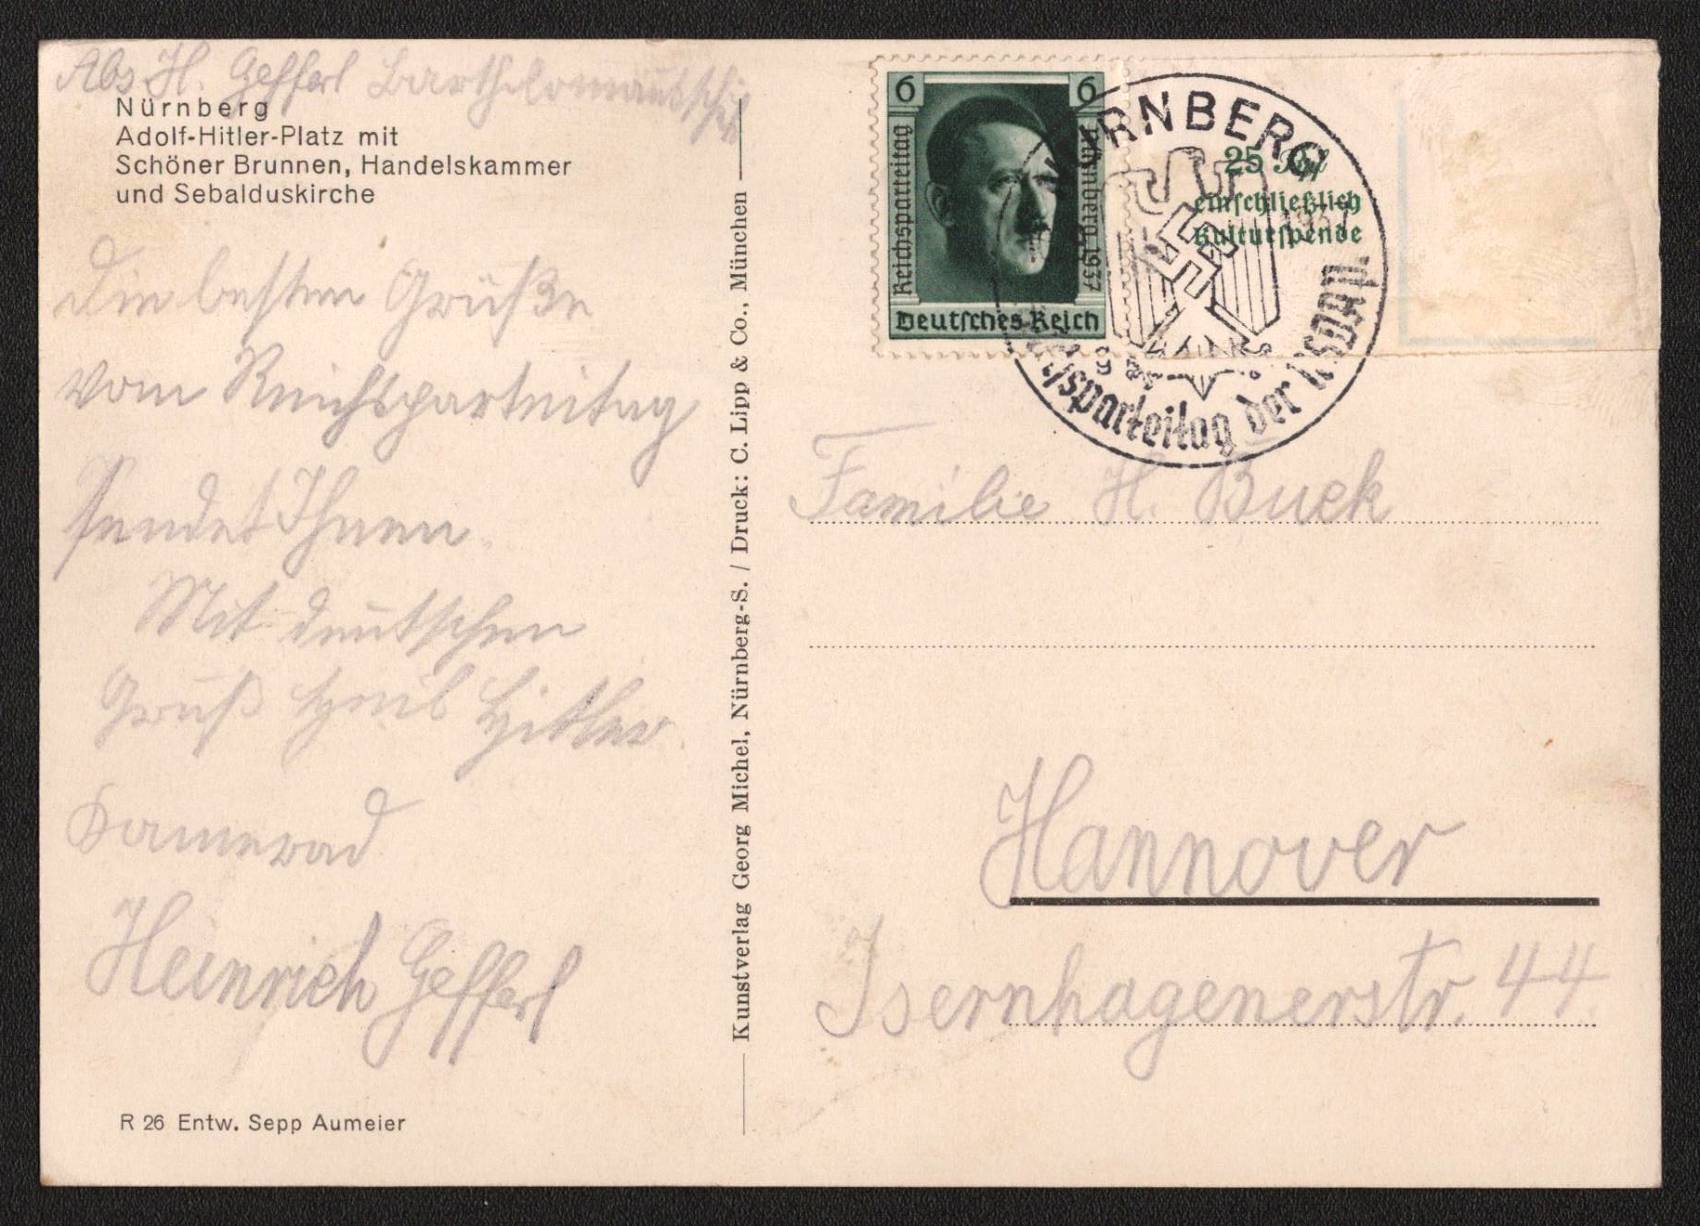 Abs. H. Gefferl
Nürnberg
Adolf-Hitler-Platz mit
Schöner Brunnen, Handelskammer
und Sebalduskirche
Die besten Grüße
vom Reichsparteitag
sendet Ihnen
Mit deutschen
Gruß Heil Hitler
Kamerad
Heinrich Gefferl
R 26 Entw. Sepp Aumeier
Kunstverlag Georg Michel, Nürnberg-S. / Druck: C. Lipp & Co., München
6 6
Reichsparteitag
Nürnberg 1937
Deutsches Reich
25 Rpf
einschließlich
Kulturspende
NÜRNBERG
Reichsparteitag der NSDAP.
Familie H. Buck
Hannover
Isernhagenerstr. 44.